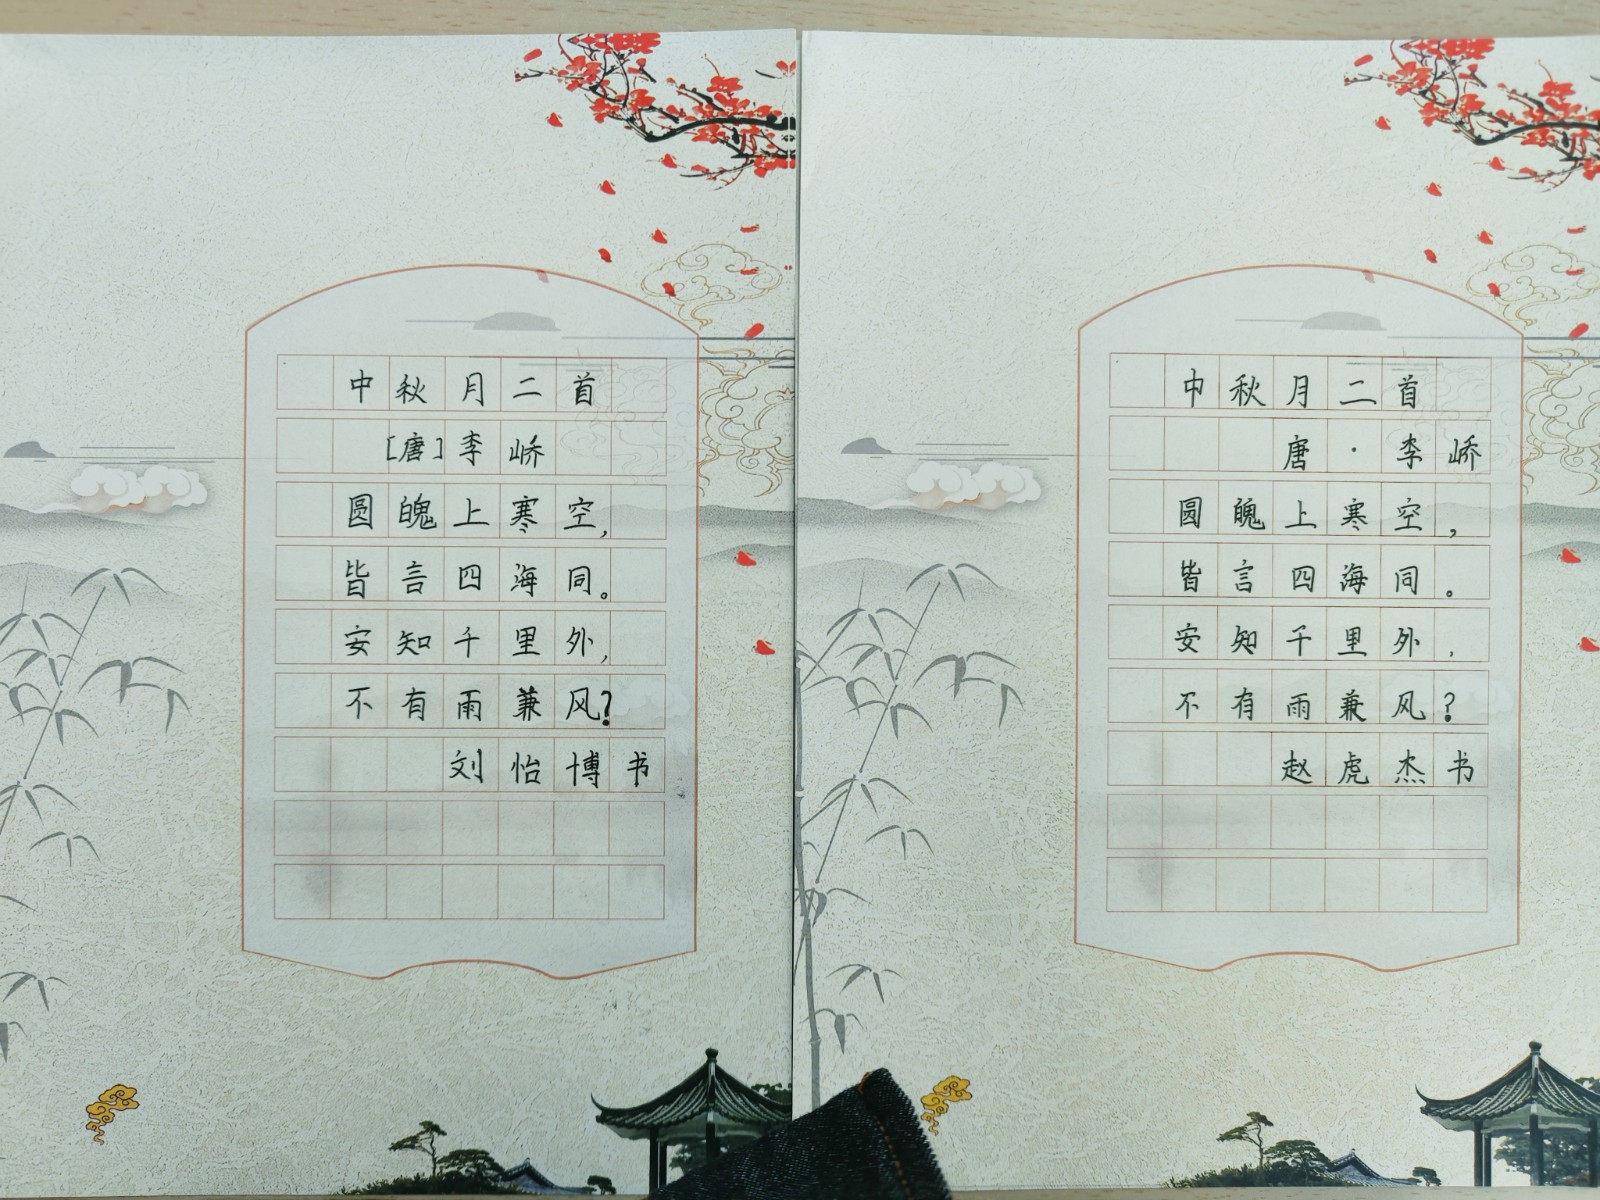 中秋月二首
[唐]李峤
圆魄上寒空,
皆言四海同。
安知千里外,
不有雨兼风?
刘怡博书
中秋月二首
唐·李峤
圆魄上寒空,
皆言四海同。
安知千里外,
不有雨兼风?
赵虎杰书